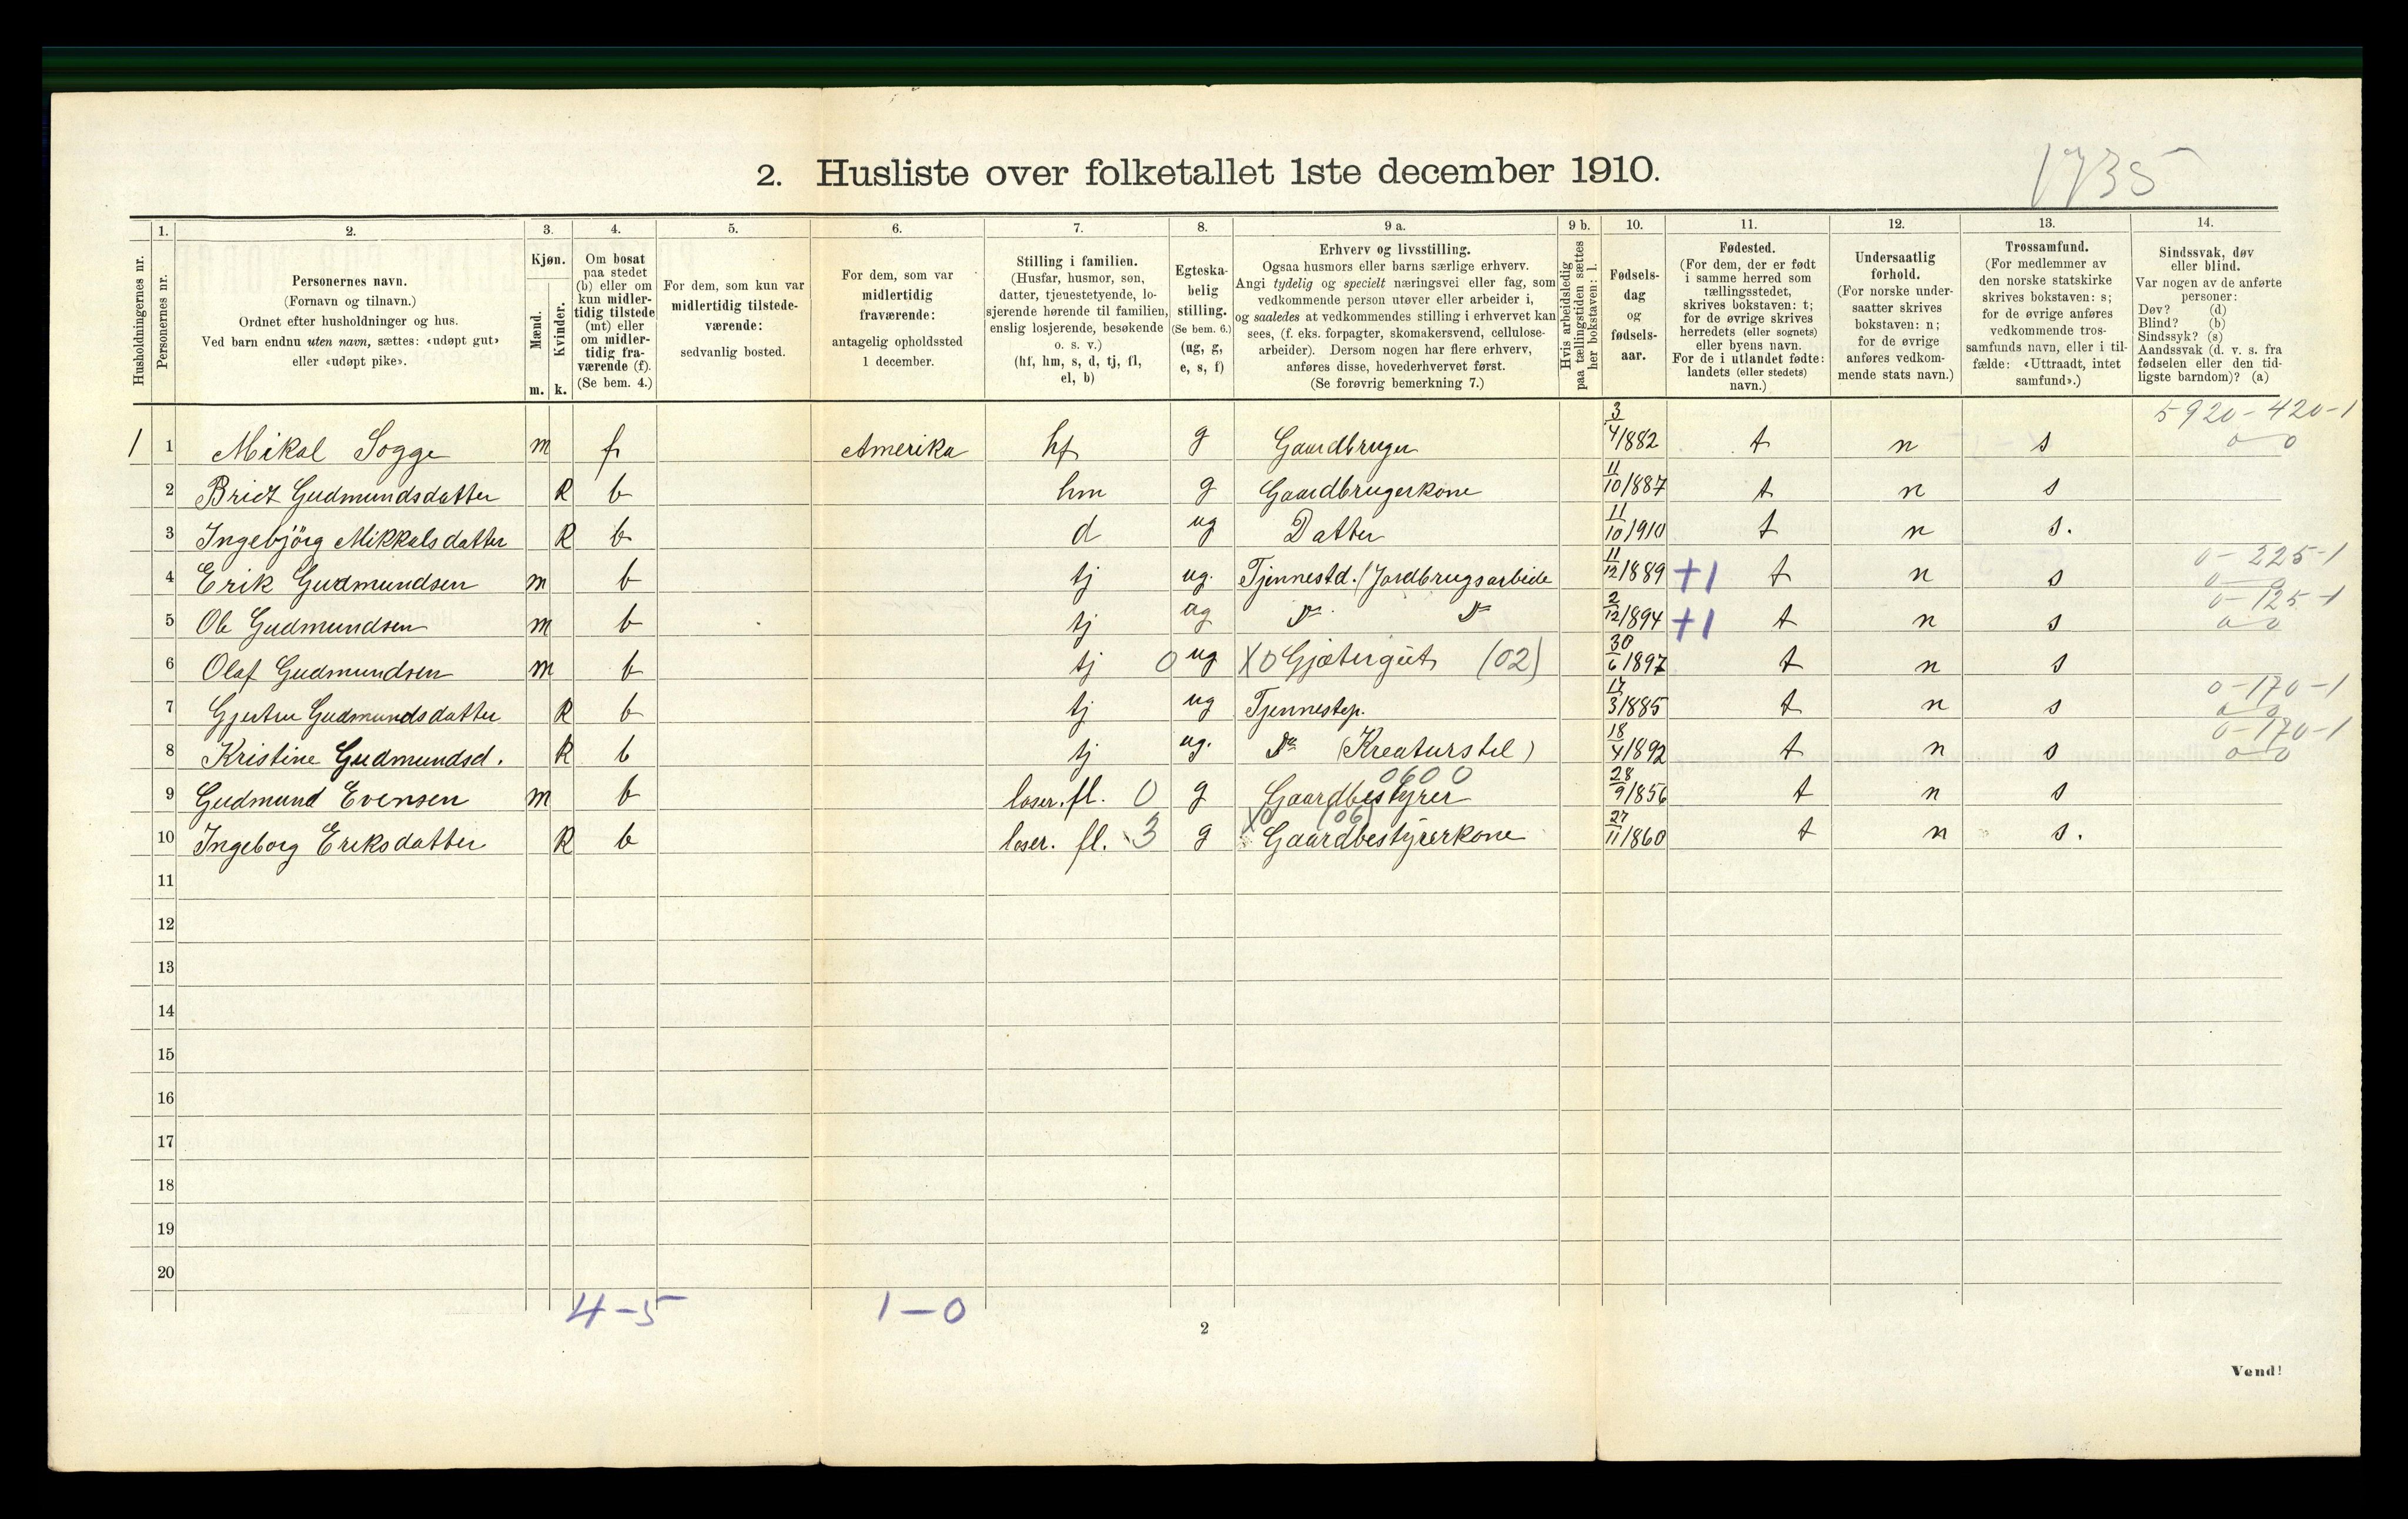 2. Husliste over folketallet 1ste december 1910.
1735
1. 2. 3. 4. 5. 6. 7. 8. 9 a. 9 b. 10. 11. 12. 13. 14.
Husholdningernes nr.
Personernes nr.
Personernes navn.
(Fornavn og tilnavn.)
Ordnet efter husholdninger og hus.
Ved barn endnu uten navn, sættes: «udøpt gut»
eller «udøpt pike».
Kjøn.
Mænd.
Kvinder.
m. k.
Om bosat
paa stedet
(b) eller om
kun midler-
tidig tilstede
(mt) eller
om midler-
tidig fra-
værende (f).
(Se bem. 4.)
For dem, som kun var
midlertidig tilstede-
værende:
sedvanlig bosted.
For dem, som var
midlertidig
fraværende:
antagelig opholdssted
1 december.
Stilling i familien.
(Husfar, husmor, søn,
datter, tjenestetyende, lo-
sjerende hørende til familien,
enslig losjerende, besøkende
o. s. v.)
(hf, hm, s, d, tj, fl,
el, b)
Egteska-
belig
stilling.
(Se bem. 6.)
(ug, g,
e, s, f)
Erhverv og livsstilling.
Ogsaa husmors eller barns særlige erhverv.
Angi tydelig og specielt næringsvei eller fag, som
vedkommende person utøver eller arbeider i,
og saaledes at vedkommendes stilling i erhvervet kan
sees, (f. eks. forpagter, skomakersvend, cellulose-
arbeider). Dersom nogen har flere erhverv,
anføres disse, hovederhvervet først.
(Se forøvrig bemerkning 7.)
Hvis arbeidsledig
paa tællingstiden sættes
her bokstaven: l.
Fødsels-
dag
og
fødsels-
aar.
Fødested.
(For dem, der er født
i samme herred som
tællingsstedet,
skrives bokstaven: t;
for de øvrige skrives
herredets (eller sognets)
eller byens navn.
For de i utlandet fødte:
landets (eller stedets)
navn.)
Undersaatlig
forhold.
(For norske under-
saatter skrives
bokstaven: n;
for de øvrige
anføres vedkom-
mende stats navn.)
Trossamfund.
(For medlemmer av
den norske statskirke
skrives bokstaven: s;
for de øvrige anføres
vedkommende tros-
samfunds navn, eller i til-
fælde: «Uttraadt, intet
samfund».)
Sindssvak, døv
eller blind.
Var nogen av de anførte
personer:
Døv? (d)
Blind? (b)
Sindssyk? (s)
Aandssvak (d. v. s. fra
fødselen eller den tid-
ligste barndom)? (a)
5920-420-1
1 1 Mikal Sogge m f Amerika hf g Gaardbruger 3/4 1882 t n s 0 0
2 Brict Gudmundsdatter K b hm g Gaardbrugerkone 11/10 1887 t n s
3 Ingebjörg Mikkalsdatter K b d ug Datter 11/10 1910 t n s.
0-225-1
4 Erik Gudmundsen m b tj ug. Tjennestd. (Jordbrugsarbeide 11/12 1889 +1 t n s 0 0
0-125-1
5 Ole Gudmundsen m b tj ug Do Do 2/12 1894 +1 t n s 0 0
6 Olaf Gudmundsen m b tj 0 ug X0 Gjætergut (02) 30/6 1897 t n s
0-170-1
7 Gjertru Gudmundsdatter K b tj ug Tjennestep. 17/3 1885 t n s 0 0
0-170-1
8 Kristine Gudmundsd. K b tj ug. Do (Kreaturstel) 18/4 1892 t n s 0 0
0600
9 Gudmund Evensen m b loser. fl. 0 g Gaardbestyrer 28/9 1856 t n s
X0 (06)
10 Ingeborg Eriksdatter K b loser. fl. 3 g Gaardbestyrerkone 27/11 1860 t n s.
11
12
13
14
15
16
17
18
19
20
4-5 1-0
2
Vend!